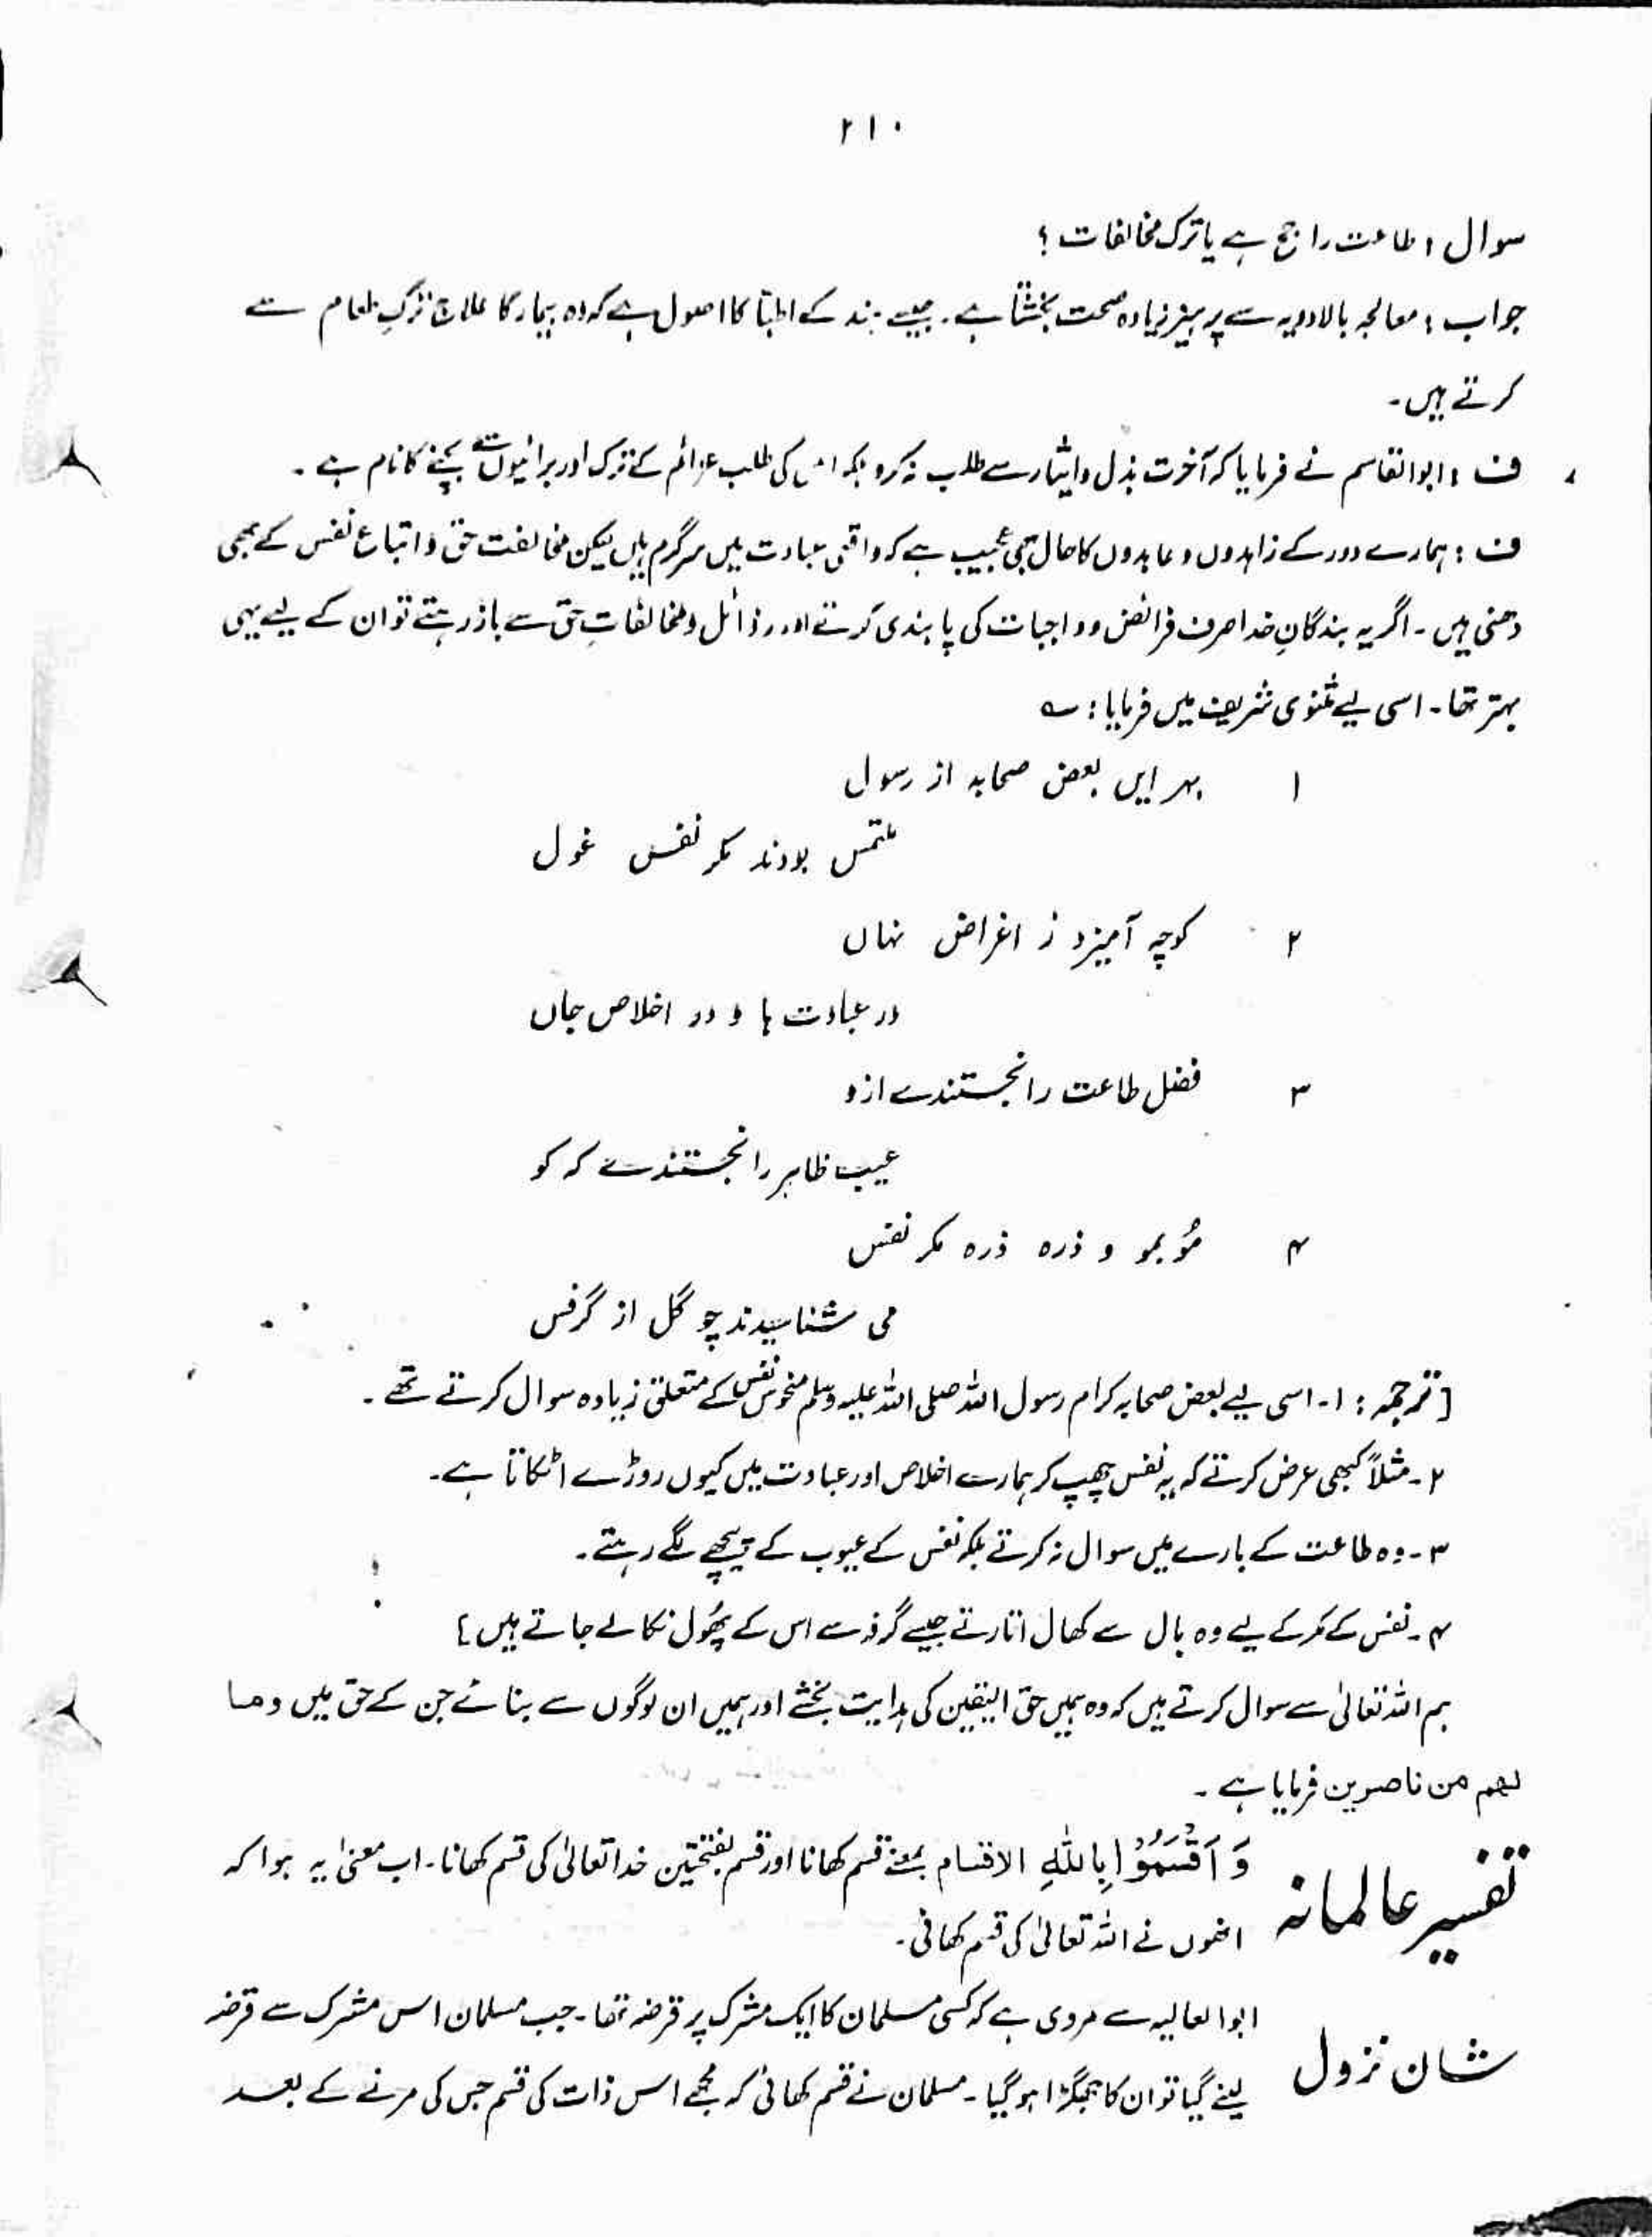 ۲۱۰
سوال : طاعت راجح ہے یا ترک مخالفات ؟
جواب : معالجہ بالادویہ سے پرہیز زیادہ صحت بخشتا ہے ۔ جیسے ہند کے اطبا کا اصول ہے کہ وہ بیمار کا علاج ترکِ طعام سے
کرتے ہیں ۔
ف : ابوالقاسم نے فرمایا کہ آخرت بذل و ایثار سے طلب نہ کرو بلکہ اس کی طلب عزائم کے ترک اور برائیوں سے بچنے کا نام ہے ۔
ف : ہمارے دور کے زاہدوں و عابدوں کا حال بھی عجیب ہے کہ واقعی عبادت میں سرگرم ہیں لیکن مخالفت حق و اتباع نفس کے بھی
دھنی ہیں ۔ اگر یہ بندگانِ خدا صرف فرائض و واجبات کی پابندی کرتے اور رذائل و مخالفاتِ حق سے باز رہتے تو ان کے لیے یہی
بہتر تھا ۔ اسی لیے مثنوی شریف میں فرمایا : ؎
۱ بہر ایں بعض صحابہ از رسول
ملتمس بودند مکر نفس غول
۲ کوچہ آمیزد ز اغراض نہاں
در عبادت ہا و در اخلاص جاں
۳ فضل طاعت را نجستندے ازو
عیب ظاہر را نجستندے کہ کو
۴ مُو بمو و ذرہ ذرہ مکر نفس
می شناسیدند چو گل از گرفس
[ ترجمہ : ۱ ۔ اسی لیے بعض صحابہ کرام رسول اللہ صلی اللہ علیہ وسلم منحوس نفس کے متعلق زیادہ سوال کرتے تھے ۔
۲ ۔ مثلاً کبھی عرض کرتے کہ یہ نفس چھپ کر ہمارے اخلاص اور عبادت میں کیوں روڑے اٹکاتا ہے ۔
۳ ۔ وہ طاعت کے بارے میں سوال نہ کرتے بلکہ نفس کے عیوب کے پیچھے لگے رہتے ۔
۴ ۔ نفس کے مکر کے لیے وہ بال سے کھال اتارتے جیسے گرفہ سے اس کے پھُول نکالے جاتے ہیں ]
ہم اللہ تعالیٰ سے سوال کرتے ہیں کہ وہ ہمیں حق الیقین کی ہدایت بخشے اور ہمیں ان لوگوں سے بنائے جن کے حق میں وما
لھم من ناصرین فرمایا ہے ۔
تفسیر عالمانہ وَ اَقْسَمُوْا بِاللّٰہِ الاقسام بمعنے قسم کھانا اور قسم بفتحتین خدا تعالیٰ کی قسم کھانا ۔ اب معنیٰ یہ ہوا کہ
انھوں نے اللہ تعالیٰ کی قسم کھائی ۔
شان نزول ابوالعالیہ سے مروی ہے کہ کسی مسلمان کا ایک مشرک پر قرضہ تھا ۔ جب مسلمان اس مشرک سے قرضہ
لینے گیا تو ان کا جھگڑا ہو گیا ۔ مسلمان نے قسم کھائی کہ مجھے اس ذات کی قسم جس کی مرنے کے بعد